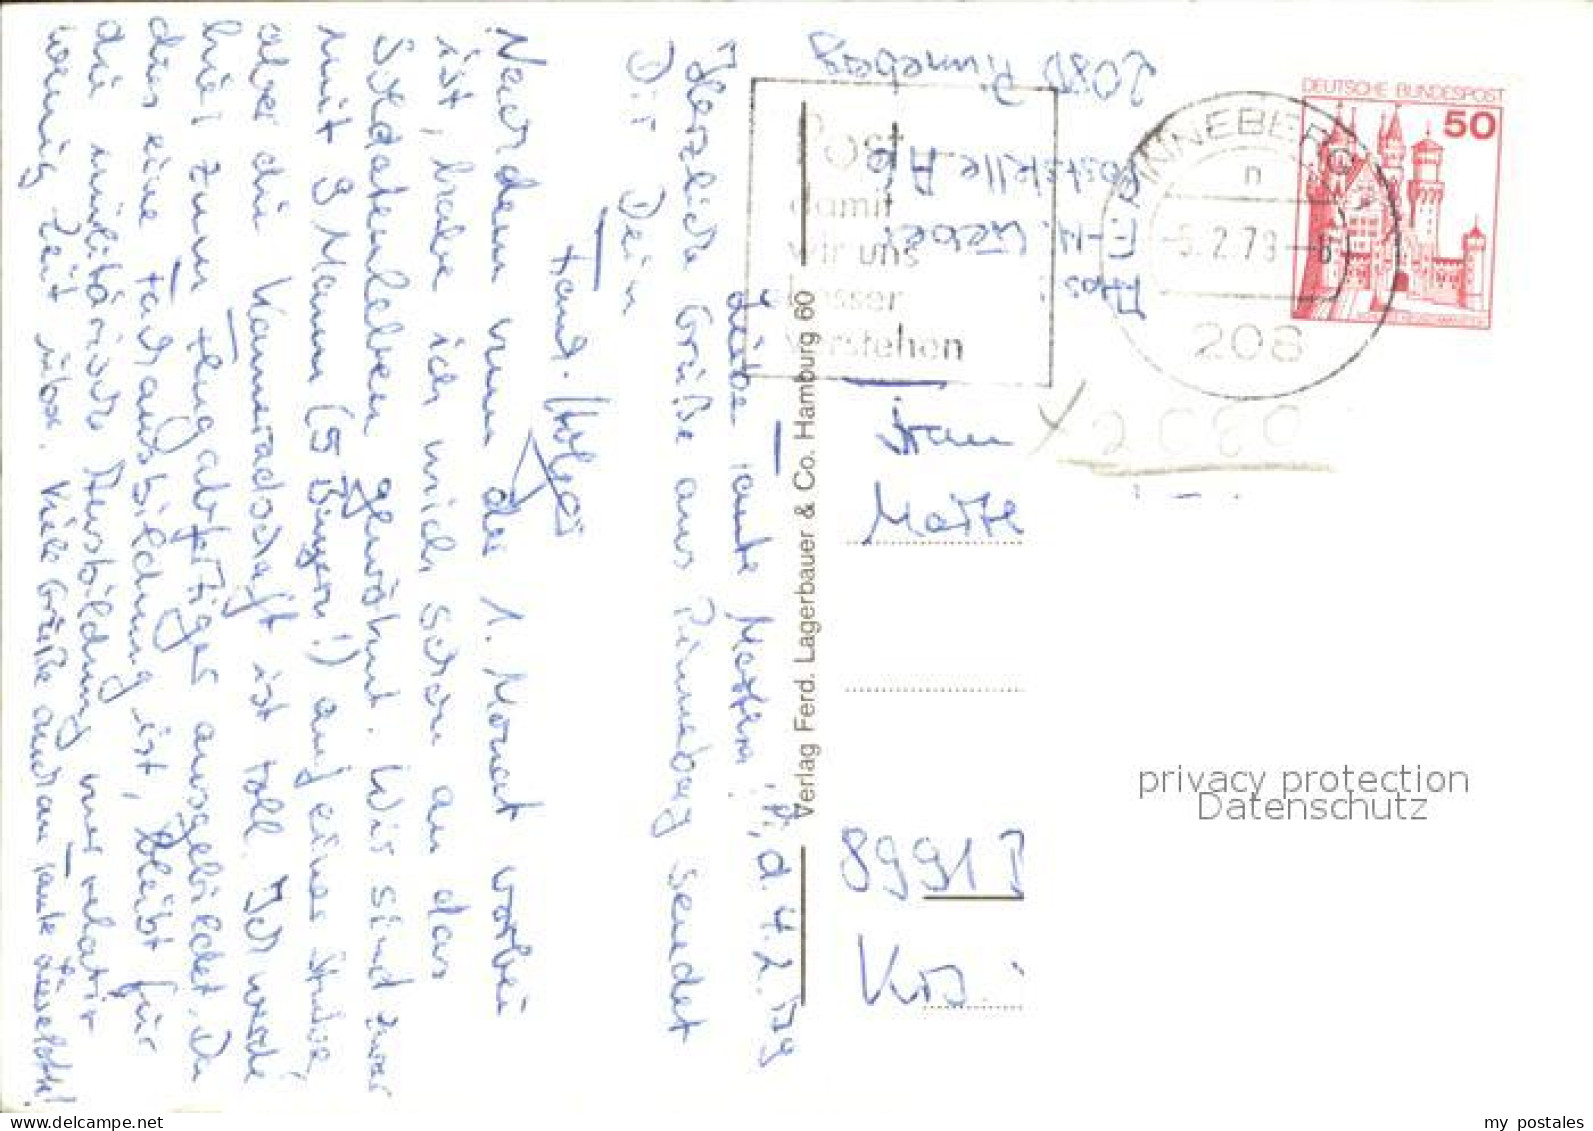 Pi, d. 4.2.79
Liebe Tante Martha!
Herzliche Grüße aus Pinneberg sendet
Dir Dein
Fand. Holger
Nachdem nun der 1. Monat vorbei
ist, habe ich mich schon an das
Soldatenleben gewöhnt. Wir sind zwar
mit 9 Mann (5 Bayern!) auf einer Stube,
aber die Kameradschaft ist toll. Ich werde
hier zum Flugabfertiger ausgebildet. Da
dies eine Fachausbildung ist, bleibt für
die militärische Ausbildung nur relativ
wenig Zeit übrig. Viele Grüße auch an Tante Lieselotte!
Verlag Ferd. Lagerbauer & Co. Hamburg 60
Abs.:
2080 Pinneberg
Post
damit
wir uns
besser
verstehen
PINNEBERG
n
-5.2.79-8
208
DEUTSCHE BUNDESPOST
50
2080
Frau
8991
Krs.
privacy protection
Datenschutz
my postales